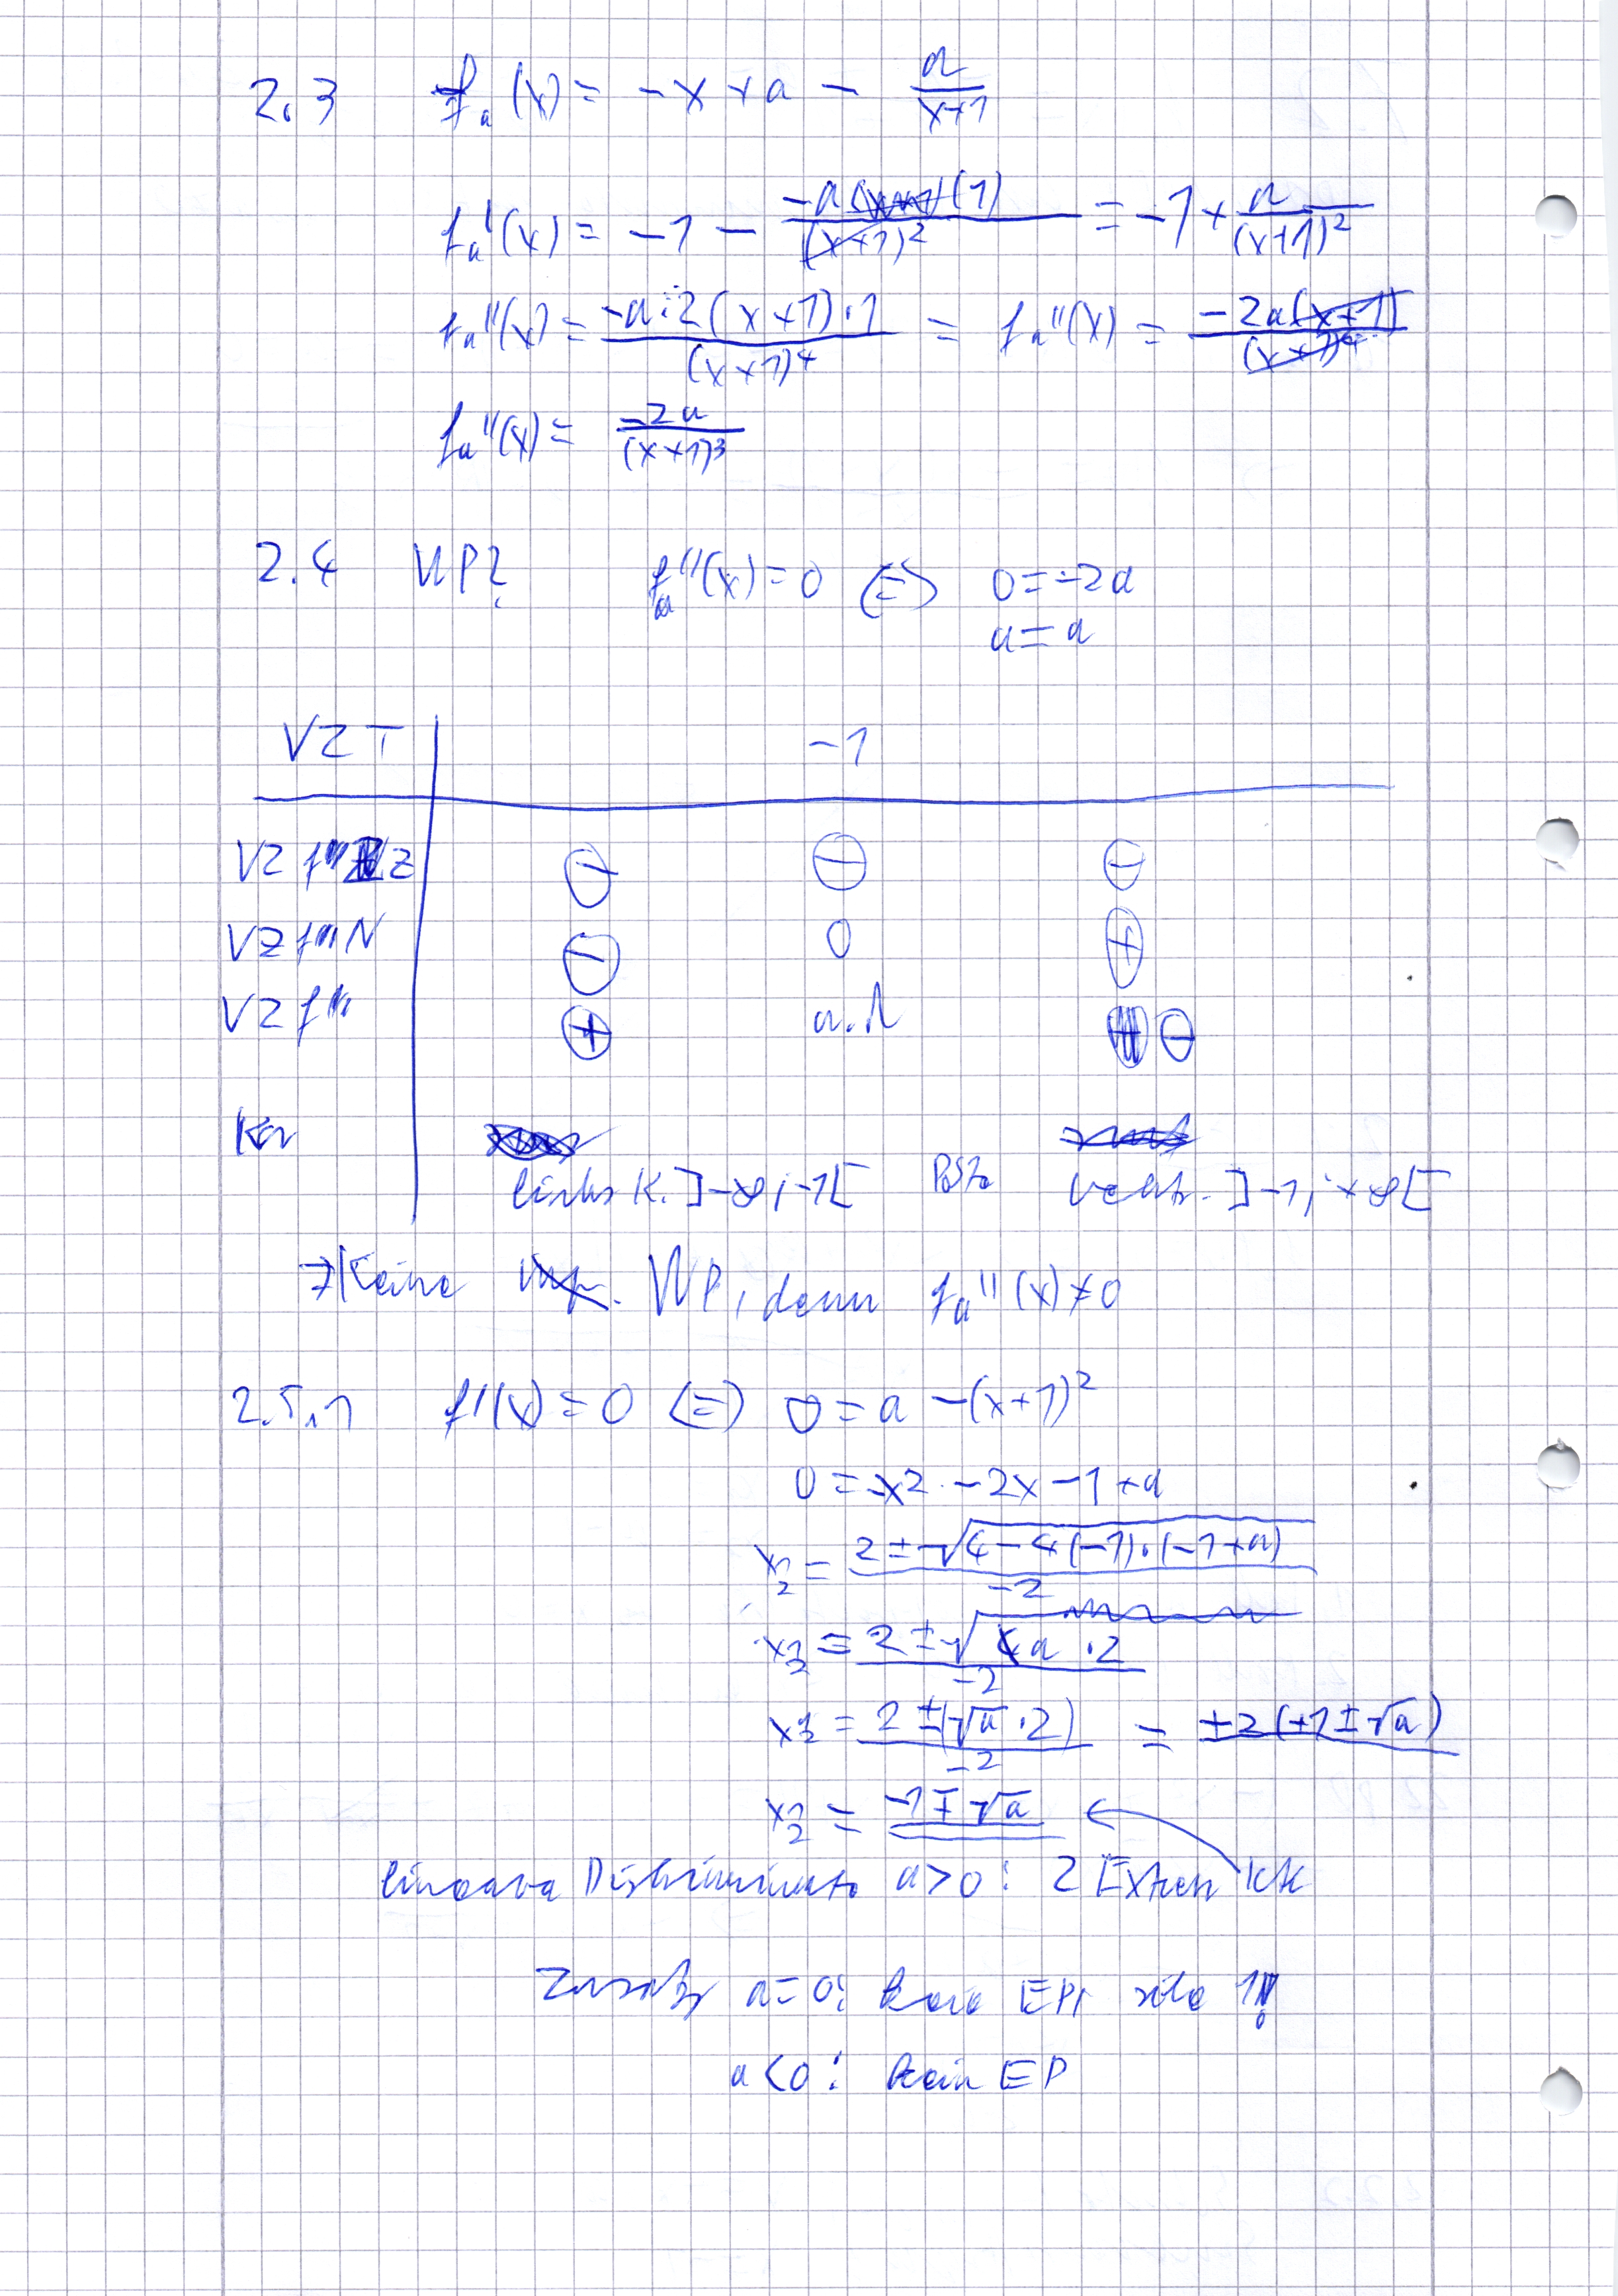 2.3 fa(x) = -x + a - a/(x+1)
fa'(x) = -1 - (-a(1))/(x+1)² = -1 + a/(x+1)²
fa''(x) = (-a·2(x+1)·1)/(x+1)⁴ = fa''(x) = (-2a(x+1))/(x+1)⁴
fa''(x) = (-2a)/(x+1)³
2.4 WP? fa''(x) = 0 <=> 0 = -2a
a = a
VZT -1
VZ f'' Z ⊖ ⊖ ⊖
VZ f'' N ⊖ 0 ⊕
VZ f'' ⊕ n.d ⊖
links K. ]-∞; -1[ Polst. rechts. ]-1; +∞[
=> Keine WP, denn fa''(x) ≠ 0
2.5.1 f'(x) = 0 <=> 0 = a - (x+1)²
0 = -x² - 2x - 1 + a
x½ = (2 ± √(4 - 4(-1)·(-1+a)))/(-2)
x½ = (2 ± √a · 2)/(-2)
x½ = (2 ± (√a · 2))/(-2) = ±2(+1 ± √a)
x½ = -1 ∓ √a
lineare Diskriminante a > 0 : 2 Extrem
Zusatz a = 0:
a < 0 : kein EP